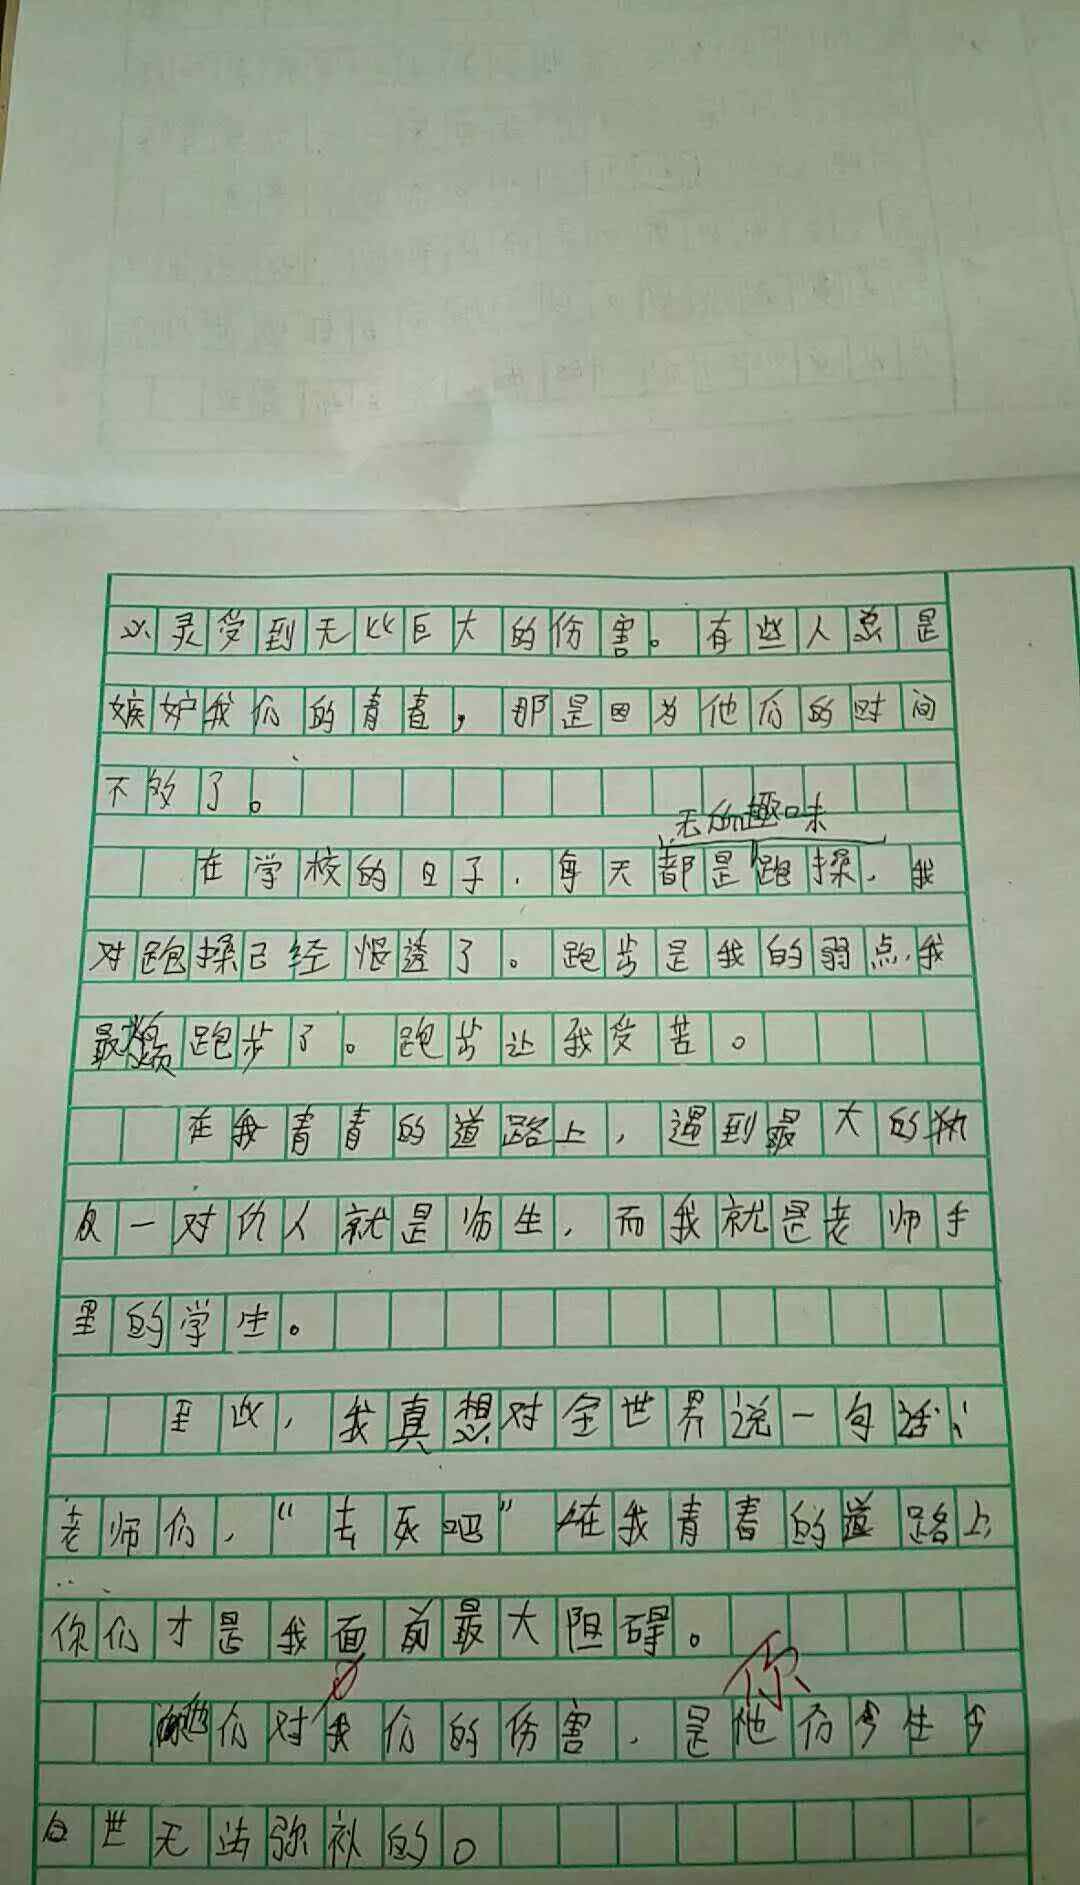 心灵受到无比巨大的伤害。有些人总是
嫉妒我们的青春，那是因为他们的时间
不够了。
无所趣味
在学校的日子，每天都是跑操，我
对跑操已经恨透了。跑步是我的弱点，我
最烦跑步了。跑步让我受苦。
在我青春的道路上，遇到最大的
一对仇人就是师生，而我就是老师手
里的学生。
至此，我真想对全世界说一句话：
老师们，“去死吧”在我青春的道路上，
你们才是我面前最大阻碍。
你
他们对我们的伤害，是他们今生今
世无法弥补的。